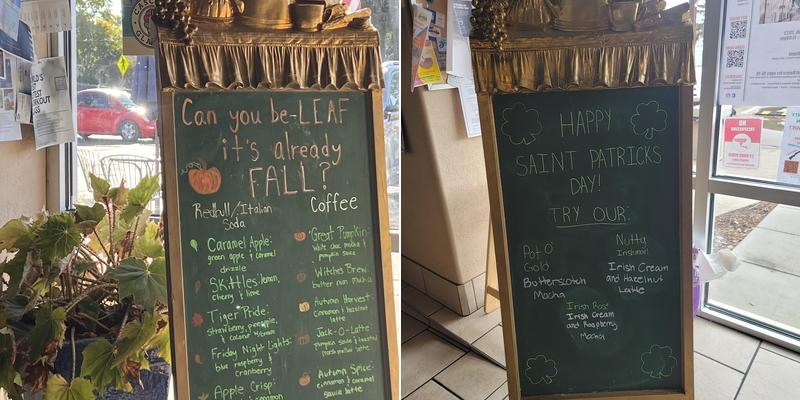 Can you be-LEAF
it's already
FALL?
Redbull/Italian
Soda
Coffee
Caramel Apple:
green apple & caramel
drizzle
Skittles: lemon,
cherry & lime
Tiger Pride:
strawberry, pineapple,
& coconut
Friday Night Lights:
blue raspberry &
cranberry
Apple Crisp:
Great Pumpkin:
white choc mocha &
pumpkin sauce
Witches Brew:
butter rum mocha
Autumn Harvest:
cinnamon & hazelnut
latte
Jack-O-Latte:
pumpkin sauce & toasted
marshmallow latte
Autumn Spice:
cinnamon & caramel
sauce latte
HAPPY
SAINT PATRICKS
DAY!
TRY OUR:
Pot O'
Gold
Butterscotch
Mocha
Nutty
Irishman
Irish Cream
and Hazelnut
Latte
Irish Rose
Irish Cream
and Raspberry
Mocha
NO
TRESPASSING